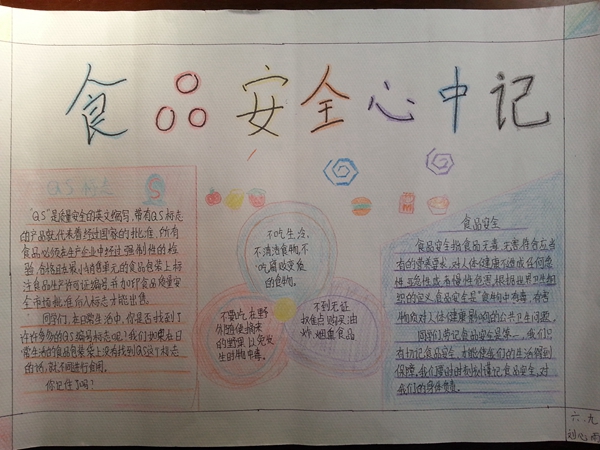 食品安全心中记
QS标志
"QS"是质量安全的英文缩写,带有QS标志
的产品就代表着经过国家的批准,所有
食品必须在生产企业中经过强制性的检
验,合格且在最小销售单元的食品包装上标
注食品生产许可证编号,并加印食品质量安
全市场准入标志才能出售。
同学们,在日常生活中,你是否找到了
许许多多的QS编号标志呢?我们如果在日
常生活的食品包装袋上没有找到QS这个标志
的话,就不同进行食用。
你记住了吗?
不吃生、冷、
不清洁食物,不
吃腐败变质
的食物。
不要吃在野
外随便摘来
的野果,以免发
生食物中毒。
不到无证
摊点购买油
炸、烟熏食品
食品安全
食品安全指食品无毒、无害,符合应当
有的营养要求,对人体健康不造成任何急
性、亚急性或者慢性危害。根据世界卫生组
织的定义,食品安全是"食物中有毒、有害
物质对人体健康影响的公共卫生问题。
同学们要记食品安全第一,我们只
有切记食品安全,才能使我们的生活得到
保障。我们要时时刻刻谨记食品安全,对
我们的身体负责。
六.九
刘心雨